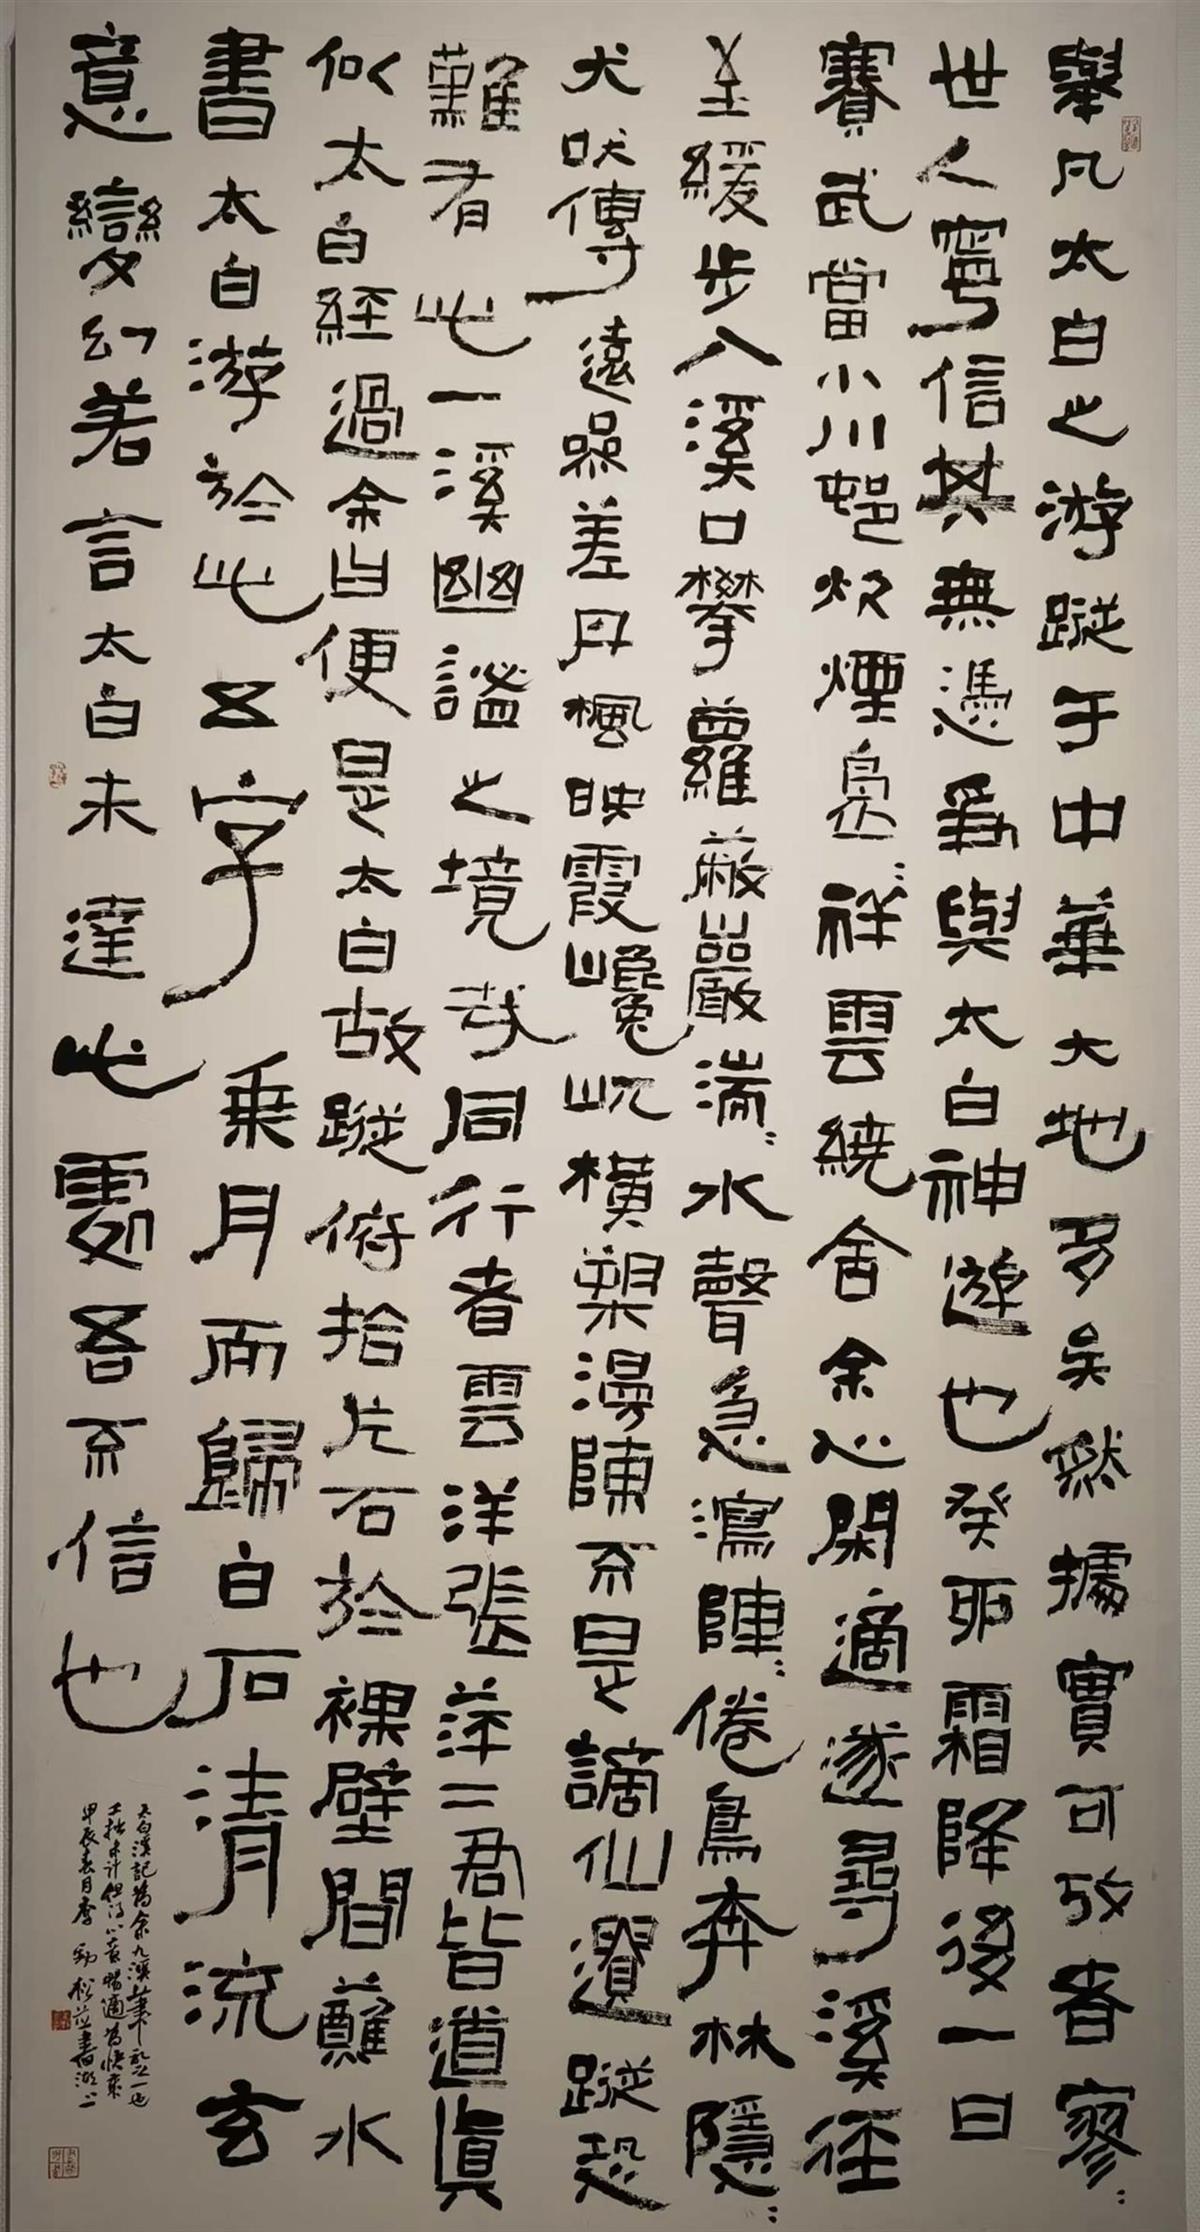 舉凡太白之游蹤于中華大地多矣然據實可攷者寥〻
世人寧信其無憑爲與太白神遊也癸卯霜降後一日
賽武當小川邨炊煙裊〻祥雲繞舍余心閑適遂尋溪徑
至緩步入溪口攀蘿蔽巖湍〻水聲急瀉陣〻倦鳥奔林隱〻
犬吠傳遠噪差丹楓映霞巉岏橫槊漫陳不是謫仙遺蹤恐
難有此一溪幽謐之境哉同行者雲洋張萍二君皆道真
似太白經過余曰便是太白故蹤俯拾片石於裸壁間蘸水
書太白游於此五字乘月而歸白石清流玄
意變幻若言太白未達此處吾不信也
太白溪記為余九溪筆下記之一也
工拙未計但得心音暢適為快乘
甲辰春月李勁松並書湖上